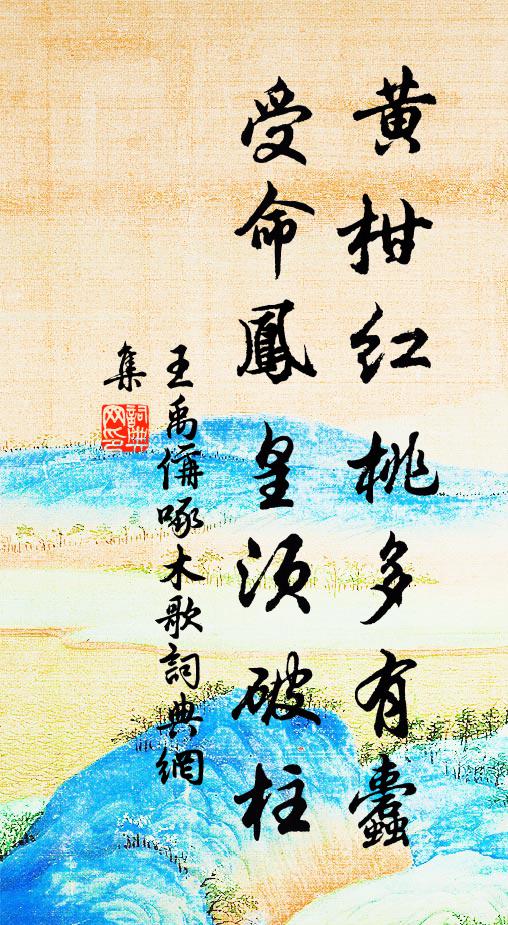 黄柑红桃多有蠹
受命鳳皇須破柱
王禹偁啄木歌詞典網
集
詞典
网印